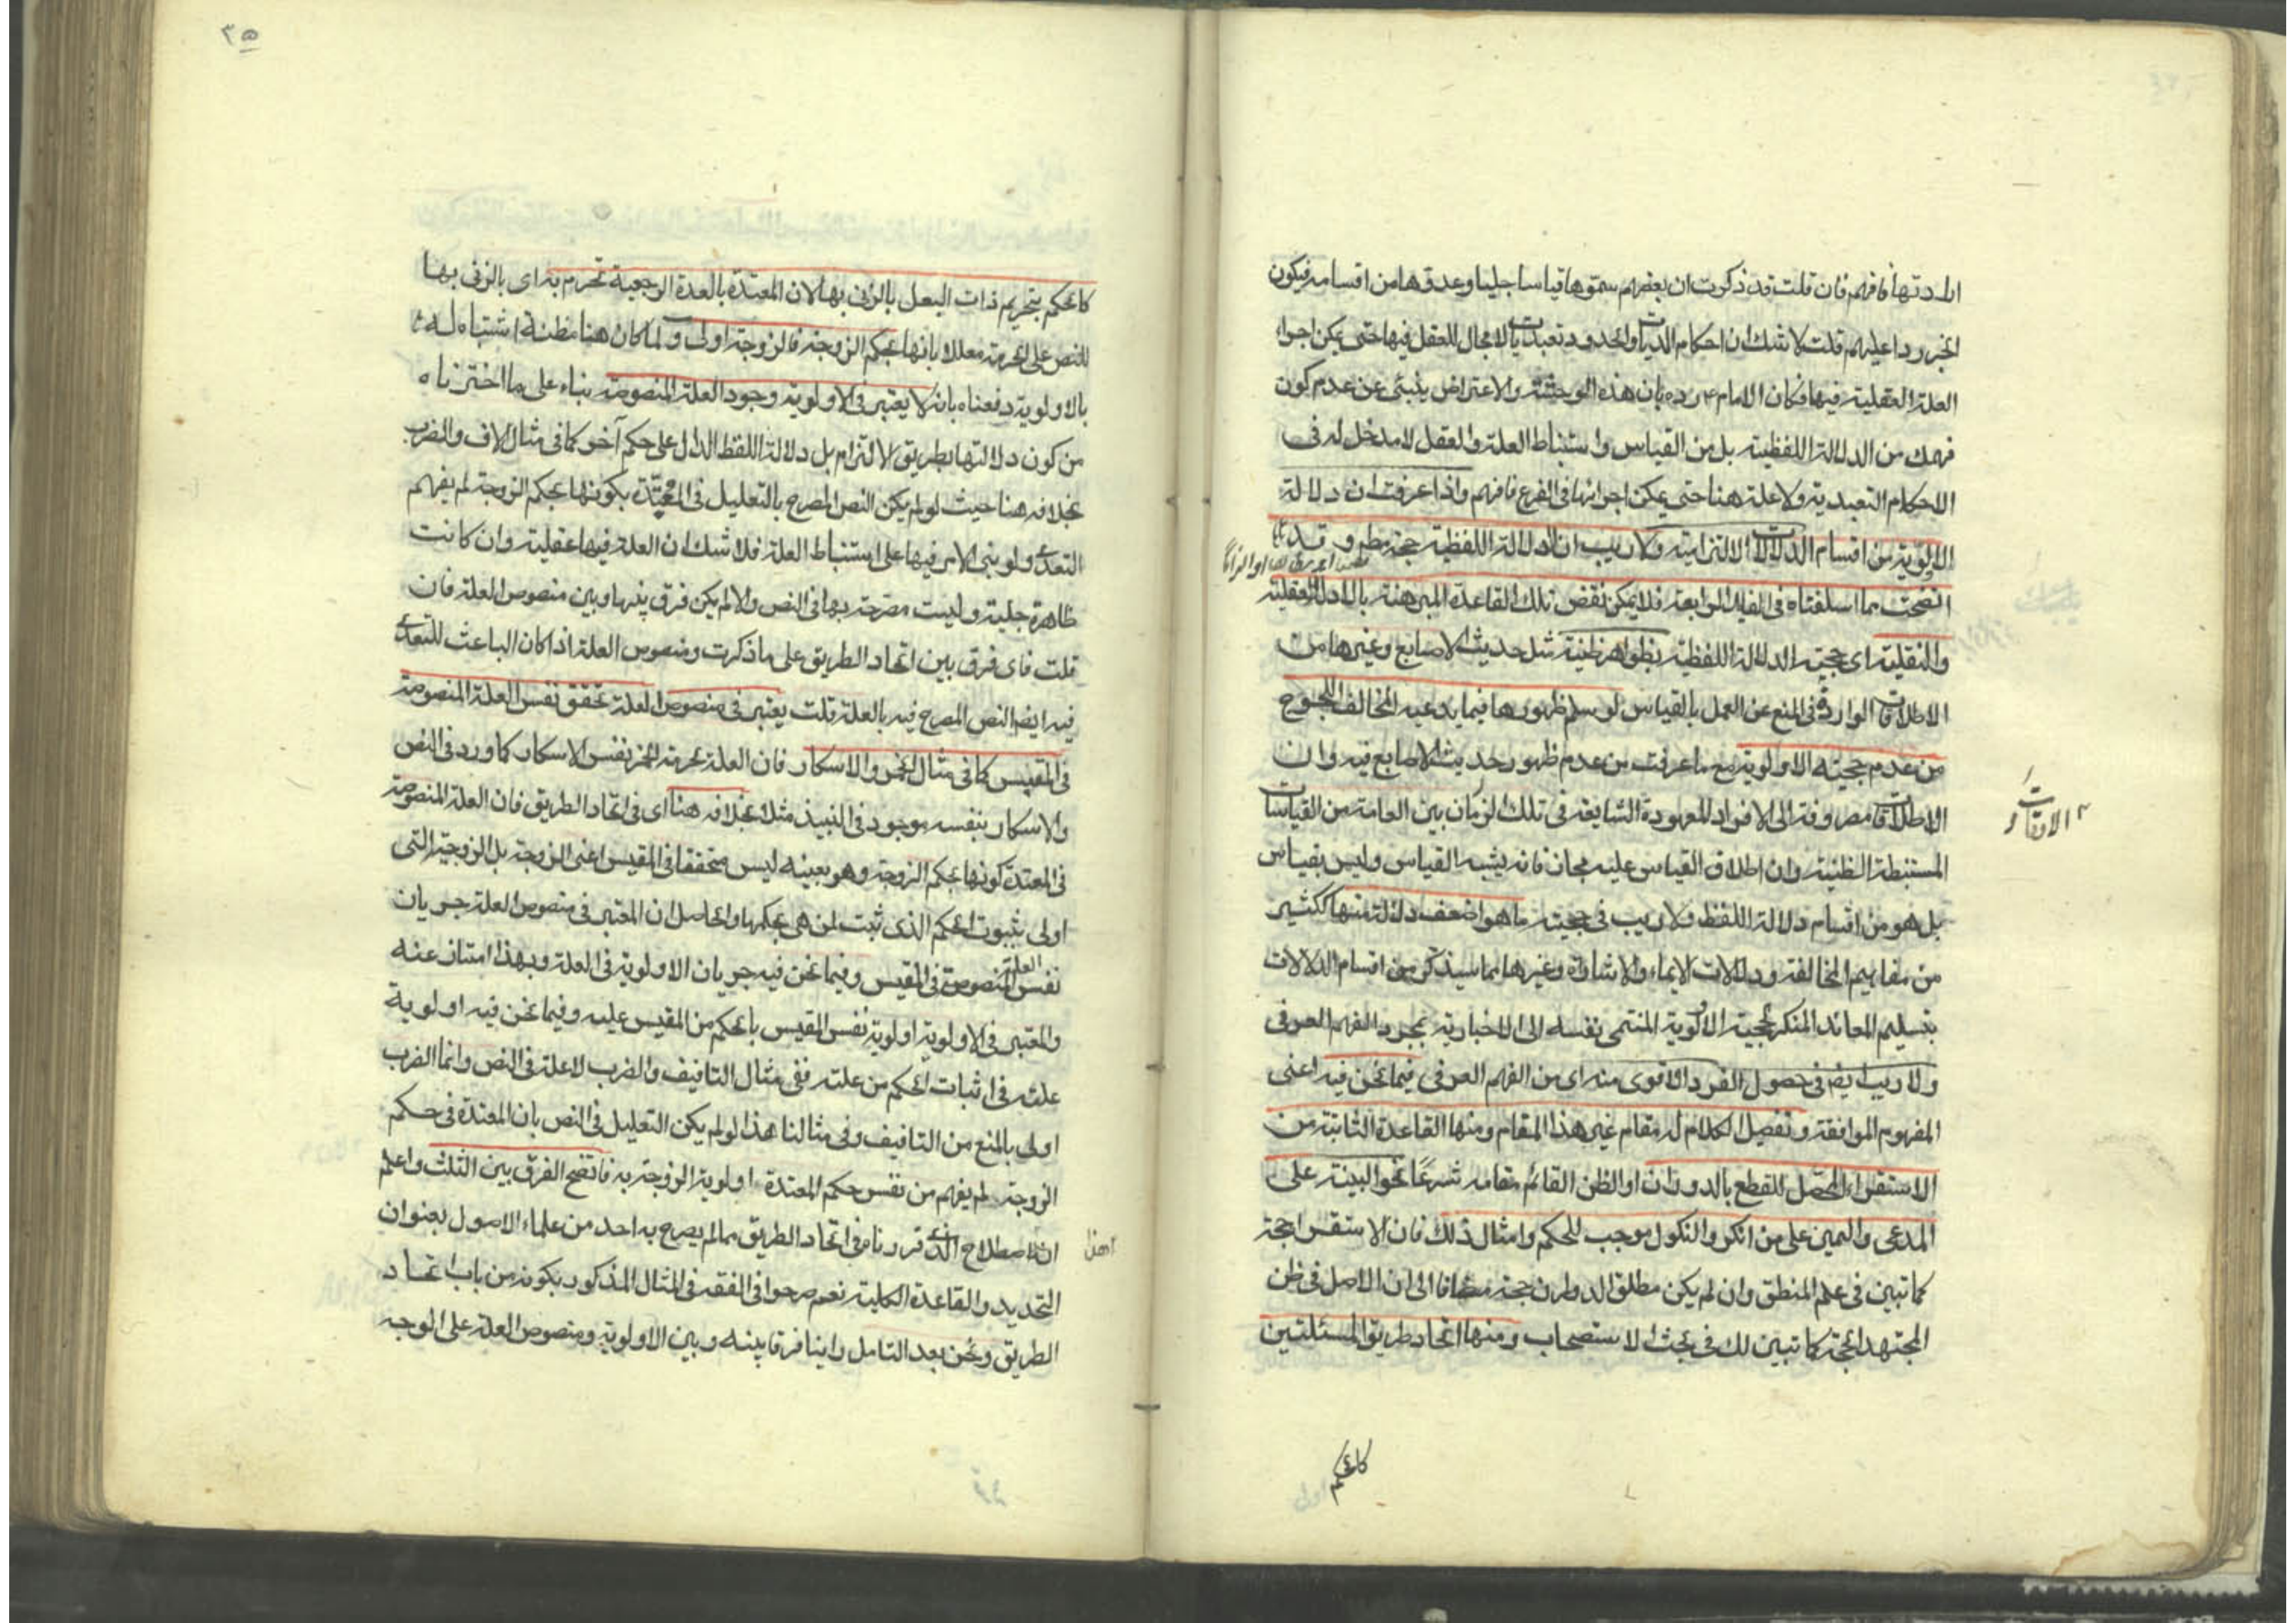 ارادتها فافهم فان قلت قد ذكرت ان بعضهم سموها قياسا جليا وعدوها من اقسامه فيكون
الخبر ردا عليهم قلت لا شك ان احكام الديات والحدود تعبديات لا مجال للعقل فيها حتى يمكن اجراء
العلة العقلية فيها فكان الامام ع رده بان هذه الوحشة والاعتراض ينبئ عن عدم كون
فهمك من الدلالة اللفظية بل من القياس واستنباط العلة والعقل لا مدخل له فى
الاحكام التعبدية ولا علة هنا حتى يمكن اجرائها فى الفرع فافهم واذا عرفت ان دلالة
الاولوية من اقسام الدلالات الالتزامية ولا ريب ان الدلالة اللفظية حجة مط وقد
اتضحت بما اسلفناه فى الفائدة الرابعة فلا يمكن نقض تلك القاعدة المبرهنة بالادلة العقلية
والنقلية اى حجية الدلالة اللفظية بظواهر ظنية مثل حديث الاصابع وغيرها من
الاطلاقات الواردة فى المنع عن العمل بالقياس لو سلم ظهورها فيما يدعيه المخالف اللجوج
من عدم حجية الاولوية مع ما عرفت من عدم ظهور حديث الاصابع فيه وان
الاطلاقات مصروفة الى الافراد المعهودة الشايعة فى تلك الزمان بين العامة من القياسات
الاوقات
المستنبطة الظنية وان اطلاق القياس عليه مجاز فانه يشبه القياس وليس بقياس
بل هو من اقسام دلالة اللفظ ولا ريب فى حجية ما هو اضعف دلالة منها ككثير
من مفاهيم المخالفة ودلالات الايماء والاشارة وغيرها مما سيذكر من اقسام الدلالات
بتسليم المعاند المنكر لحجية الاولوية المنتمى نفسه الى الاخبارية بمجرد الفهم العرفى
ولا ريب ايضا فى حصول الفرد الاقوى منه اى من الفهم العرفى فيما نحن فيه اعنى
المفهوم الموافقة وتفصيل الكلام له مقام غير هذا المقام ومنها القاعدة الثابتة من
الاستقراء المحصل للقطع بالدوران او الظن القائم مقامه شرعًا نحو البينة على
المدعى واليمين على من انكر والنكول موجب للحكم وامثال ذلك فان الاستقراء حجة
كما تبين فى علم المنطق وان لم يكن مطلق الدوران حجة مضافا الى ان الاصل فى ظن
المجتهد الحجة كما تبين لك فى بحث الاستصحاب ومنها اتحاد طريق المسئلتين
كالحكم
٣٥
كالحكم بتحريم ذات البعل بالزنى بها لان المعتدة بالعدة الرجعية تحرم به اى بالزنى بها
للنص على الحرمة معللا بانها بحكم الزوجة فالزوجة اولى ولما كان هنا مظنة اشتباه له
بالاولوية دفعناه بانه لا يعتبر فى الاولوية وجود العلة المنصوصة بناء على ما اخترناه
من كون دلالتها بطريق الالتزام بل دلالة اللفظ الدال على حكم آخر كما فى مثال الاف والضرب
بخلافه هنا حيث لو لم يكن النص المصرح بالتعليل فى المعتدة بكونها بحكم الزوجة لم يفهم
التعدى ولو بنى الامر فيها على استنباط العلة فلا شك ان العلة فيها عقلية وان كانت
ظاهرة جلية وليست مصرحة بها فى النص والا لم يكن فرق بينها وبين منصوص العلة فان
قلت فاى فرق بين اتحاد الطريق على ما ذكرت ومنصوص العلة اذا كان الباعث للتعدى
فيه ايضا النص المصرح فيه بالعلة قلت يعتبر فى منصوص العلة تحقق نفس العلة المنصوصة
فى المقيس كما فى مثال الخمر والاسكار فان العلة بحرمة الخمر نفس الاسكار كما ورد فى النص
والاسكار بنفسه موجود فى النبيذ مثلا بخلافه هنا اى فى اتحاد الطريق فان العلة المنصوصة
فى المعتدة كونها بحكم الزوجة وهو بعينه ليس متحققا فى المقيس اعنى الزوجة بل الزوجة التى
اولى بثبوت الحكم الذى ثبت لمن هى بحكمها والحاصل ان المعتبر فى منصوص العلة جريان
نفس العلة المنصوصة فى المقيس وفيما نحن فيه جريان الاولوية فى العلة وبهذا امتاز عنه
والمعتبر فى الاولوية اولوية نفس المقيس بالحكم من المقيس عليه وفيما نحن فيه اولوية
علته فى اثبات الحكم من علته ففى مثال التافيف والضرب لا علة فى النص وانما الضرب
اولى بالمنع من التافيف وفى مثالنا هذا لو لم يكن التعليل فى النص بان المعتدة فى حكم
الزوجة لم يفهم من نفس حكم المعتدة اولوية الزوجة به فاتضح الفرق بين الثلث واعلم
ان هذا اصطلاح الذى قررناه فى اتحاد الطريق مما لم يصرح به احد من علماء الاصول بعنوان
التحديد والقاعدة الكلية نعم صرحوا فى الفقه فى المثال المذكور بكونه من باب اتحاد
الطريق ونحن بعد التامل راينا فرقا بينه وبين الاولوية ومنصوص العلة على الوجه